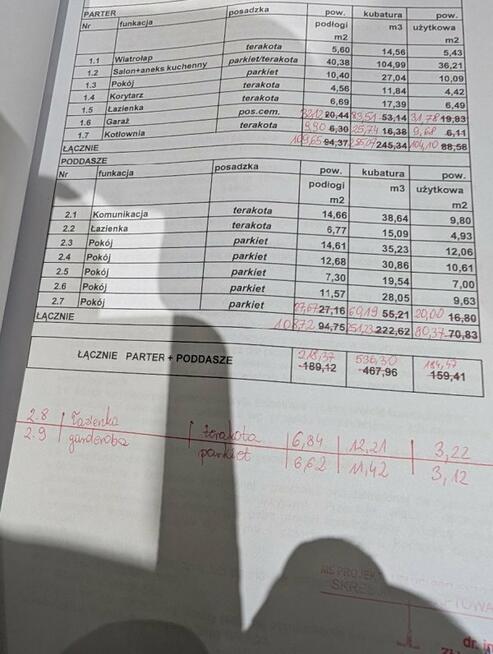 PARTER
Nr funkcja posadzka pow. podłogi m2 kubatura m3 pow. użytkowa m2
1.1 Wiatrołap terakota 5,60 14,56 5,43
1.2 Salon+aneks kuchenny parkiet/terakota 40,38 104,99 36,21
1.3 Pokój parkiet 10,40 27,04 10,09
1.4 Korytarz terakota 4,56 11,84 4,42
1.5 Łazienka terakota 6,69 17,39 6,49
1.6 Garaż pos.cem. 32,12 20,44 83,51 53,14 31,78 19,83
1.7 Kotłownia terakota 9,90 6,30 25,74 16,38 9,68 6,11
ŁĄCZNIE 109,65 94,37 245,34 104,10 88,58
PODDASZE
Nr funkacja posadzka pow. podłogi m2 kubatura m3 pow. użytkowa m2
2.1 Komunikacja terakota 14,66 38,64 9,80
2.2 Łazienka terakota 6,77 15,09 4,93
2.3 Pokój parkiet 14,61 35,23 12,06
2.4 Pokój parkiet 12,68 30,86 10,61
2.5 Pokój parkiet 7,30 19,54 7,00
2.6 Pokój parkiet 11,57 28,05 9,63
2.7 Pokój parkiet 27,67 27,16 60,19 55,21 20,00 16,80
ŁĄCZNIE 108,72 94,75 251,23 222,62 80,37 70,83
ŁĄCZNIE PARTER + PODDASZE 218,37 189,12 536,30 467,96 184,47 159,41
2.8 Łazienka terakota 6,84 12,21 3,22
2.9 garderoba parkiet 6,62 11,42 3,12
dr. in